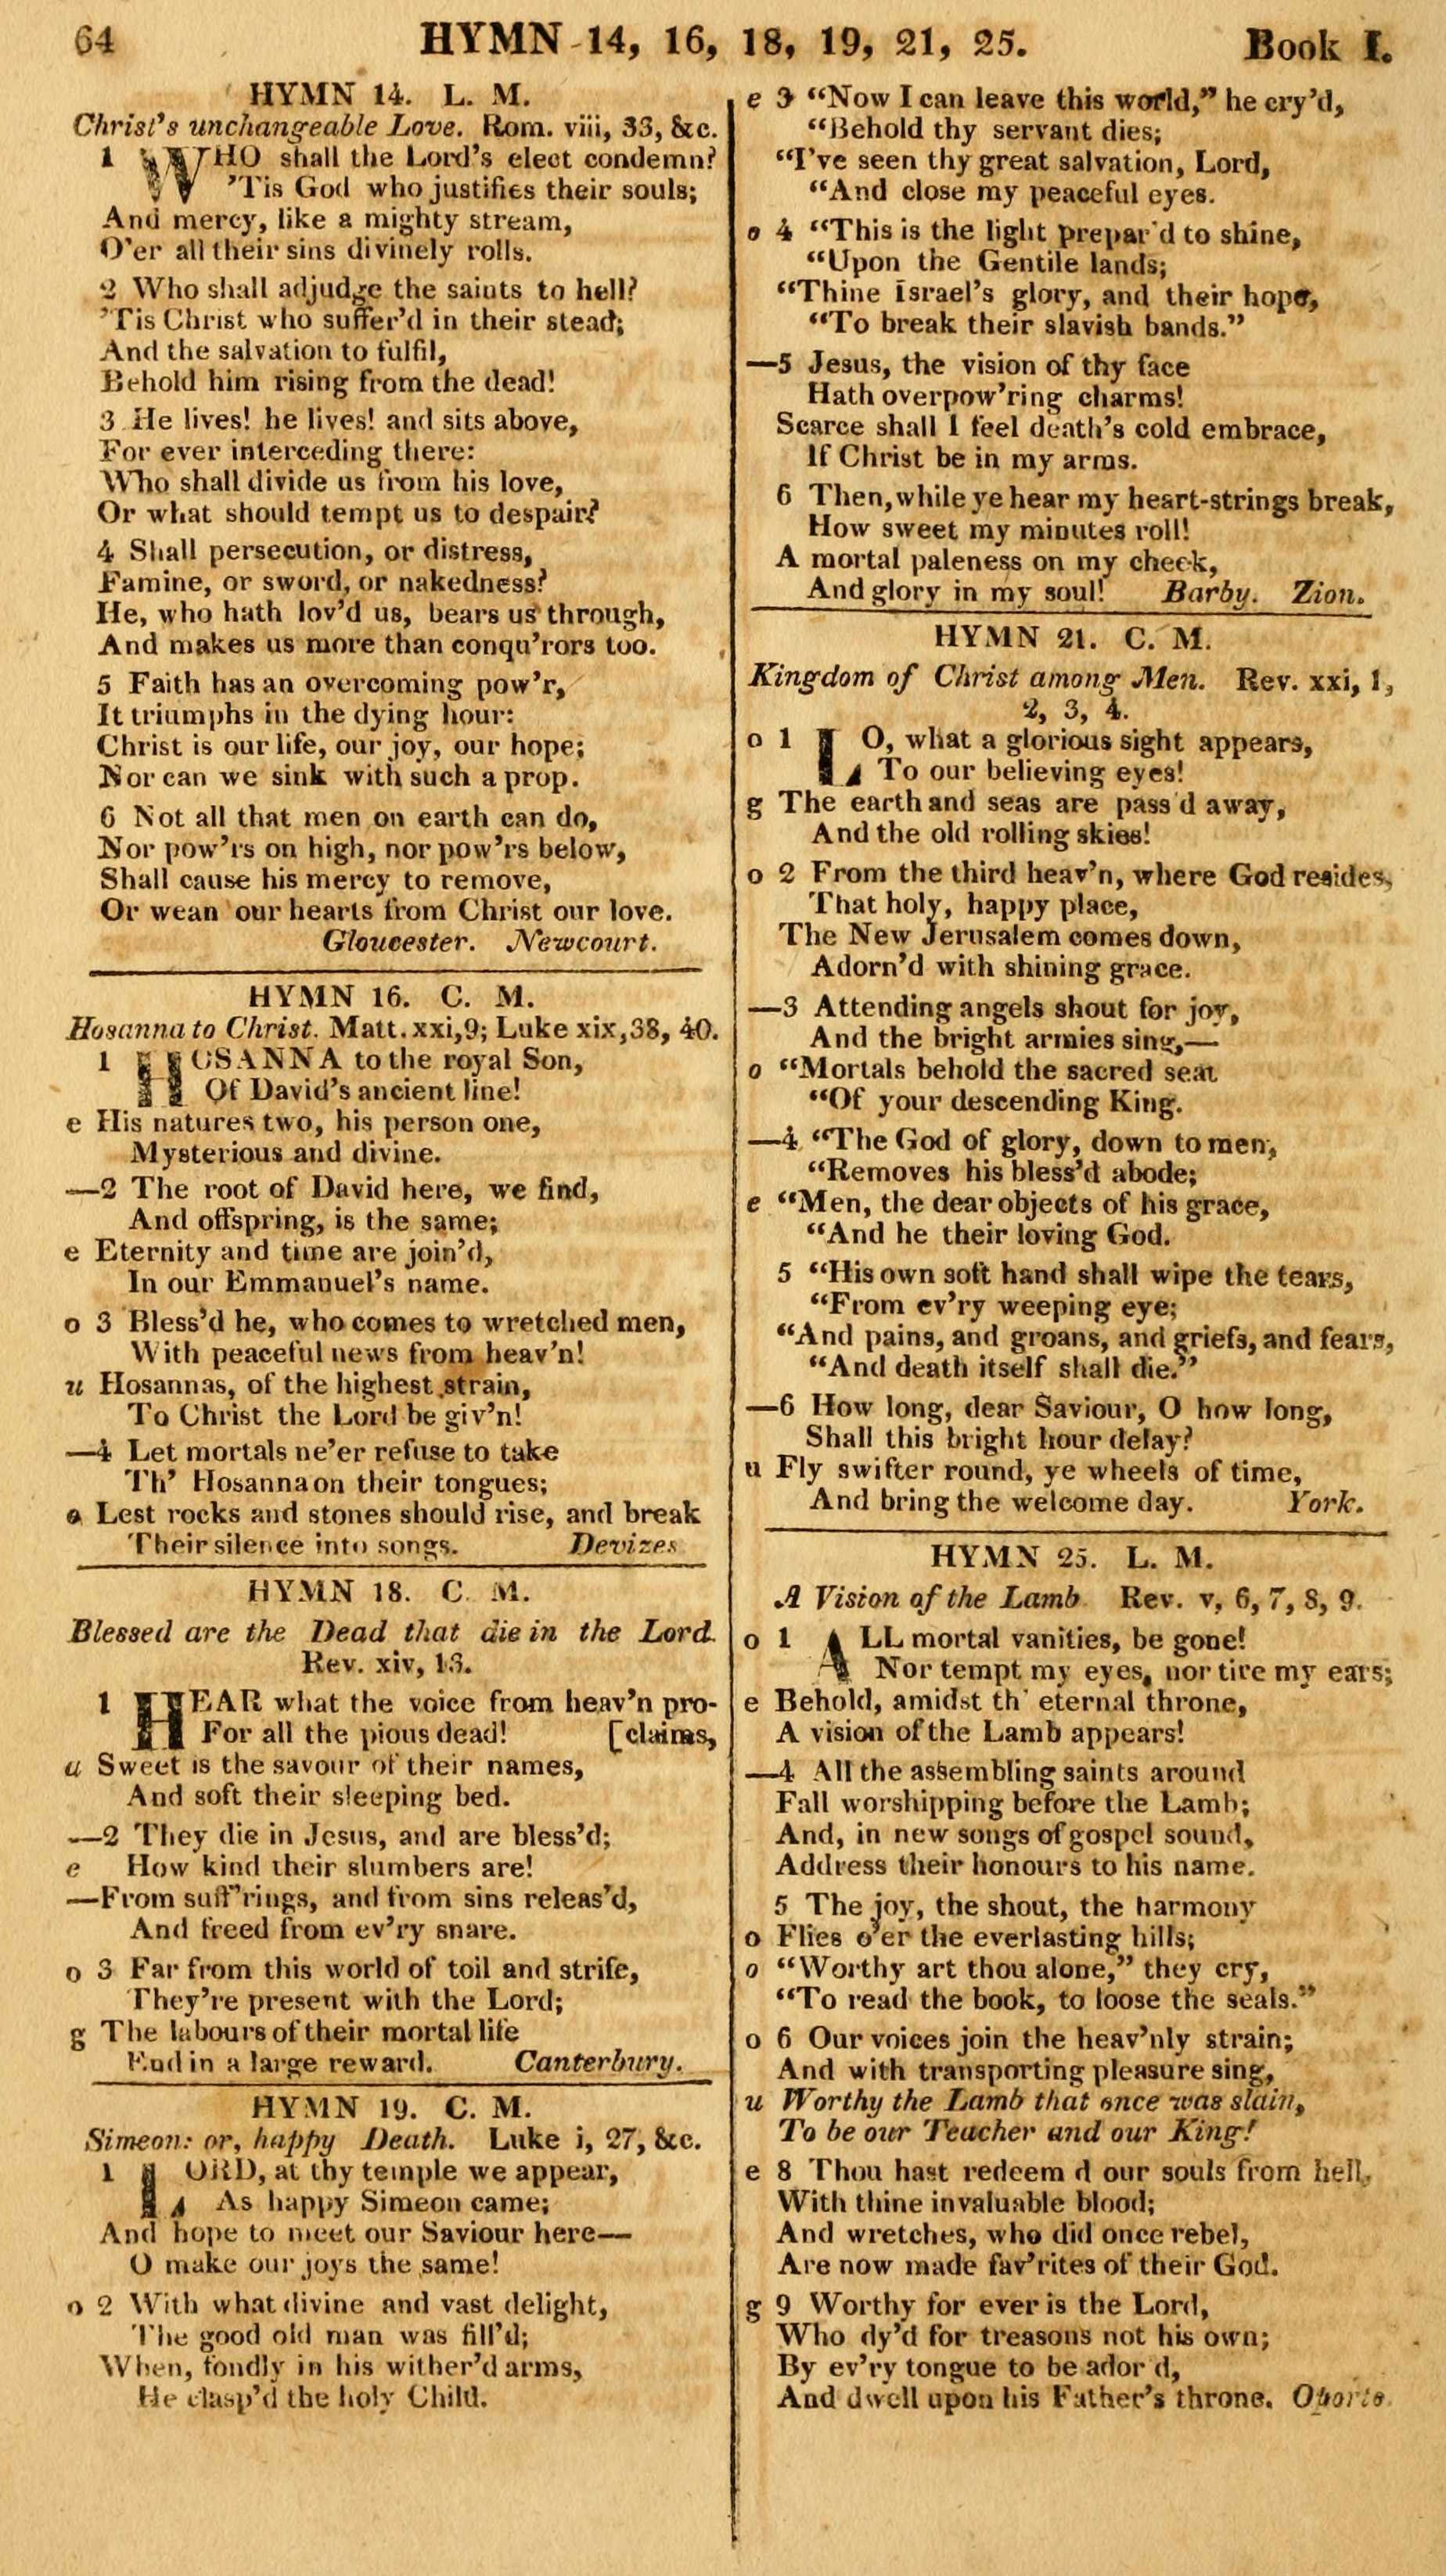 64 HYMN 14, 16, 18, 19, 21, 25. Book I.
HYMN 14. L. M.
Christ's unchangeable Love. Rom. viii, 33, &c.
1 WHO shall the Lord's elect condemn?
'Tis God who justifies their souls;
And mercy, like a mighty stream,
O'er all their sins divinely rolls.
2 Who shall adjudge the saints to hell?
'Tis Christ who suffer'd in their stead;
And the salvation to fulfil,
Behold him rising from the dead!
3 He lives! he lives! and sits above,
For ever interceding there:
Who shall divide us from his love,
Or what should tempt us to despair?
4 Shall persecution, or distress,
Famine, or sword, or nakedness?
He, who hath lov'd us, bears us through,
And makes us more than conqu'rors too.
5 Faith has an overcoming pow'r,
It triumphs in the dying hour:
Christ is our life, our joy, our hope;
Nor can we sink with such a prop.
6 Not all that men on earth can do,
Nor pow'rs on high, nor pow'rs below,
Shall cause his mercy to remove,
Or wean our hearts from Christ our love.
Gloucester. Newcourt.
HYMN 16. C. M.
Hosanna to Christ. Matt. xxi, 9; Luke xix, 38, 40.
1 HOSANNA to the royal Son,
Of David's ancient line!
e His natures two, his person one,
Mysterious and divine.
—2 The root of David here, we find,
And offspring, is the same;
e Eternity and time are join'd,
In our Emmanuel's name.
o 3 Bless'd he, who comes to wretched men,
With peaceful news from heav'n!
u Hosannas, of the highest strain,
To Christ the Lord be giv'n!
—4 Let mortals ne'er refuse to take
Th' Hosanna on their tongues;
o Lest rocks and stones should rise, and break
Their silence into songs. Devizes
HYMN 18. C. M.
Blessed are the Dead that die in the Lord.
Rev. xiv, 13.
1 HEAR what the voice from heav'n pro-
For all the pious dead! [claims,
u Sweet is the savour of their names,
And soft their sleeping bed.
—2 They die in Jesus, and are bless'd;
e How kind their slumbers are!
—From suff'rings, and from sins releas'd,
And freed from ev'ry snare.
o 3 Far from this world of toil and strife,
They're present with the Lord;
g The labours of their mortal life
End in a large reward. Canterbury.
HYMN 19. C. M.
Simeon: or, happy Death. Luke i, 27, &c.
1 LORD, at thy temple we appear,
As happy Simeon came;
And hope to meet our Saviour here—
O make our joys the same!
o 2 With what divine and vast delight,
The good old man was fill'd;
When, fondly in his wither'd arms,
He clasp'd the holy Child.
e 3 "Now I can leave this world," he cry'd,
"Behold thy servant dies;
"I've seen thy great salvation, Lord,
"And close my peaceful eyes.
o 4 "This is the light prepar'd to shine,
"Upon the Gentile lands;
"Thine Israel's glory, and their hope,
"To break their slavish bands."
—5 Jesus, the vision of thy face
Hath overpow'ring charms!
Scarce shall I feel death's cold embrace,
If Christ be in my arms.
6 Then, while ye hear my heart-strings break,
How sweet my minutes roll!
A mortal paleness on my cheek,
And glory in my soul! Barby. Zion.
HYMN 21. C. M.
Kingdom of Christ among Men. Rev. xxi, 1,
2, 3, 4.
o 1 LO, what a glorious sight appears,
To our believing eyes!
g The earth and seas are pass'd away,
And the old rolling skies!
o 2 From the third heav'n, where God resides,
That holy, happy place,
The New Jerusalem comes down,
Adorn'd with shining grace.
—3 Attending angels shout for joy,
And the bright armies sing,—
o "Mortals behold the sacred seat
"Of your descending King.
—4 "The God of glory, down to men,
"Removes his bless'd abode;
e "Men, the dear objects of his grace,
"And he their loving God.
5 "His own soft hand shall wipe the tears,
"From ev'ry weeping eye;
"And pains, and groans, and griefs, and fears,
"And death itself shall die."
—6 How long, dear Saviour, O how long,
Shall this bright hour delay?
u Fly swifter round, ye wheels of time,
And bring the welcome day. York.
HYMN 25. L. M.
A Vision of the Lamb Rev. v, 6, 7, 8, 9.
o 1 ALL mortal vanities, be gone!
Nor tempt my eyes, nor tire my ears;
e Behold, amidst th' eternal throne,
A vision of the Lamb appears!
—4 All the assembling saints around
Fall worshipping before the Lamb;
And, in new songs of gospel sound,
Address their honours to his name.
5 The joy, the shout, the harmony
o Flies o'er the everlasting hills;
o "Worthy art thou alone," they cry,
"To read the book, to loose the seals."
o 6 Our voices join the heav'nly strain;
And with transporting pleasure sing,
u Worthy the Lamb that once was slain,
To be our Teacher and our King!
e 8 Thou hast redeem'd our souls from hell,
With thine invaluable blood;
And wretches, who did once rebel,
Are now made fav'rites of their God.
g 9 Worthy for ever is the Lord,
Who dy'd for treasons not his own;
By ev'ry tongue to be ador'd,
And dwell upon his Father's throne. Oporto